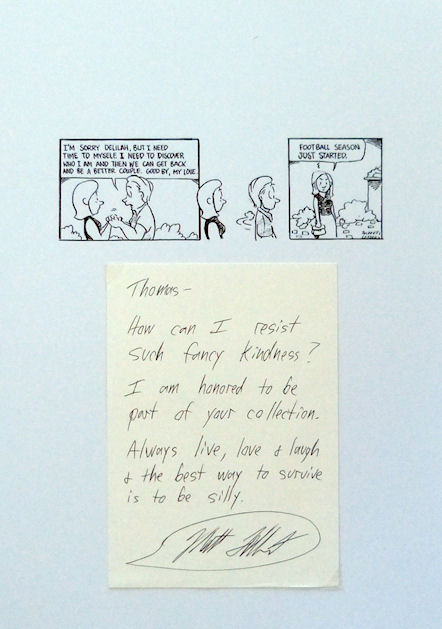 I'M SORRY DELILAH, BUT I NEED
TIME TO MYSELF I NEED TO DISCOVER
WHO I AM AND THEN WE CAN GET BACK
AND BE A BETTER COUPLE. GOOD BY, MY LOVE.
FOOTBALL SEASON
JUST STARTED.
Thomas-
How can I resist
such fancy kindness?
I am honored to be
part of your collection.
Always live, love & laugh
& the best way to survive
is to be silly.
Matt